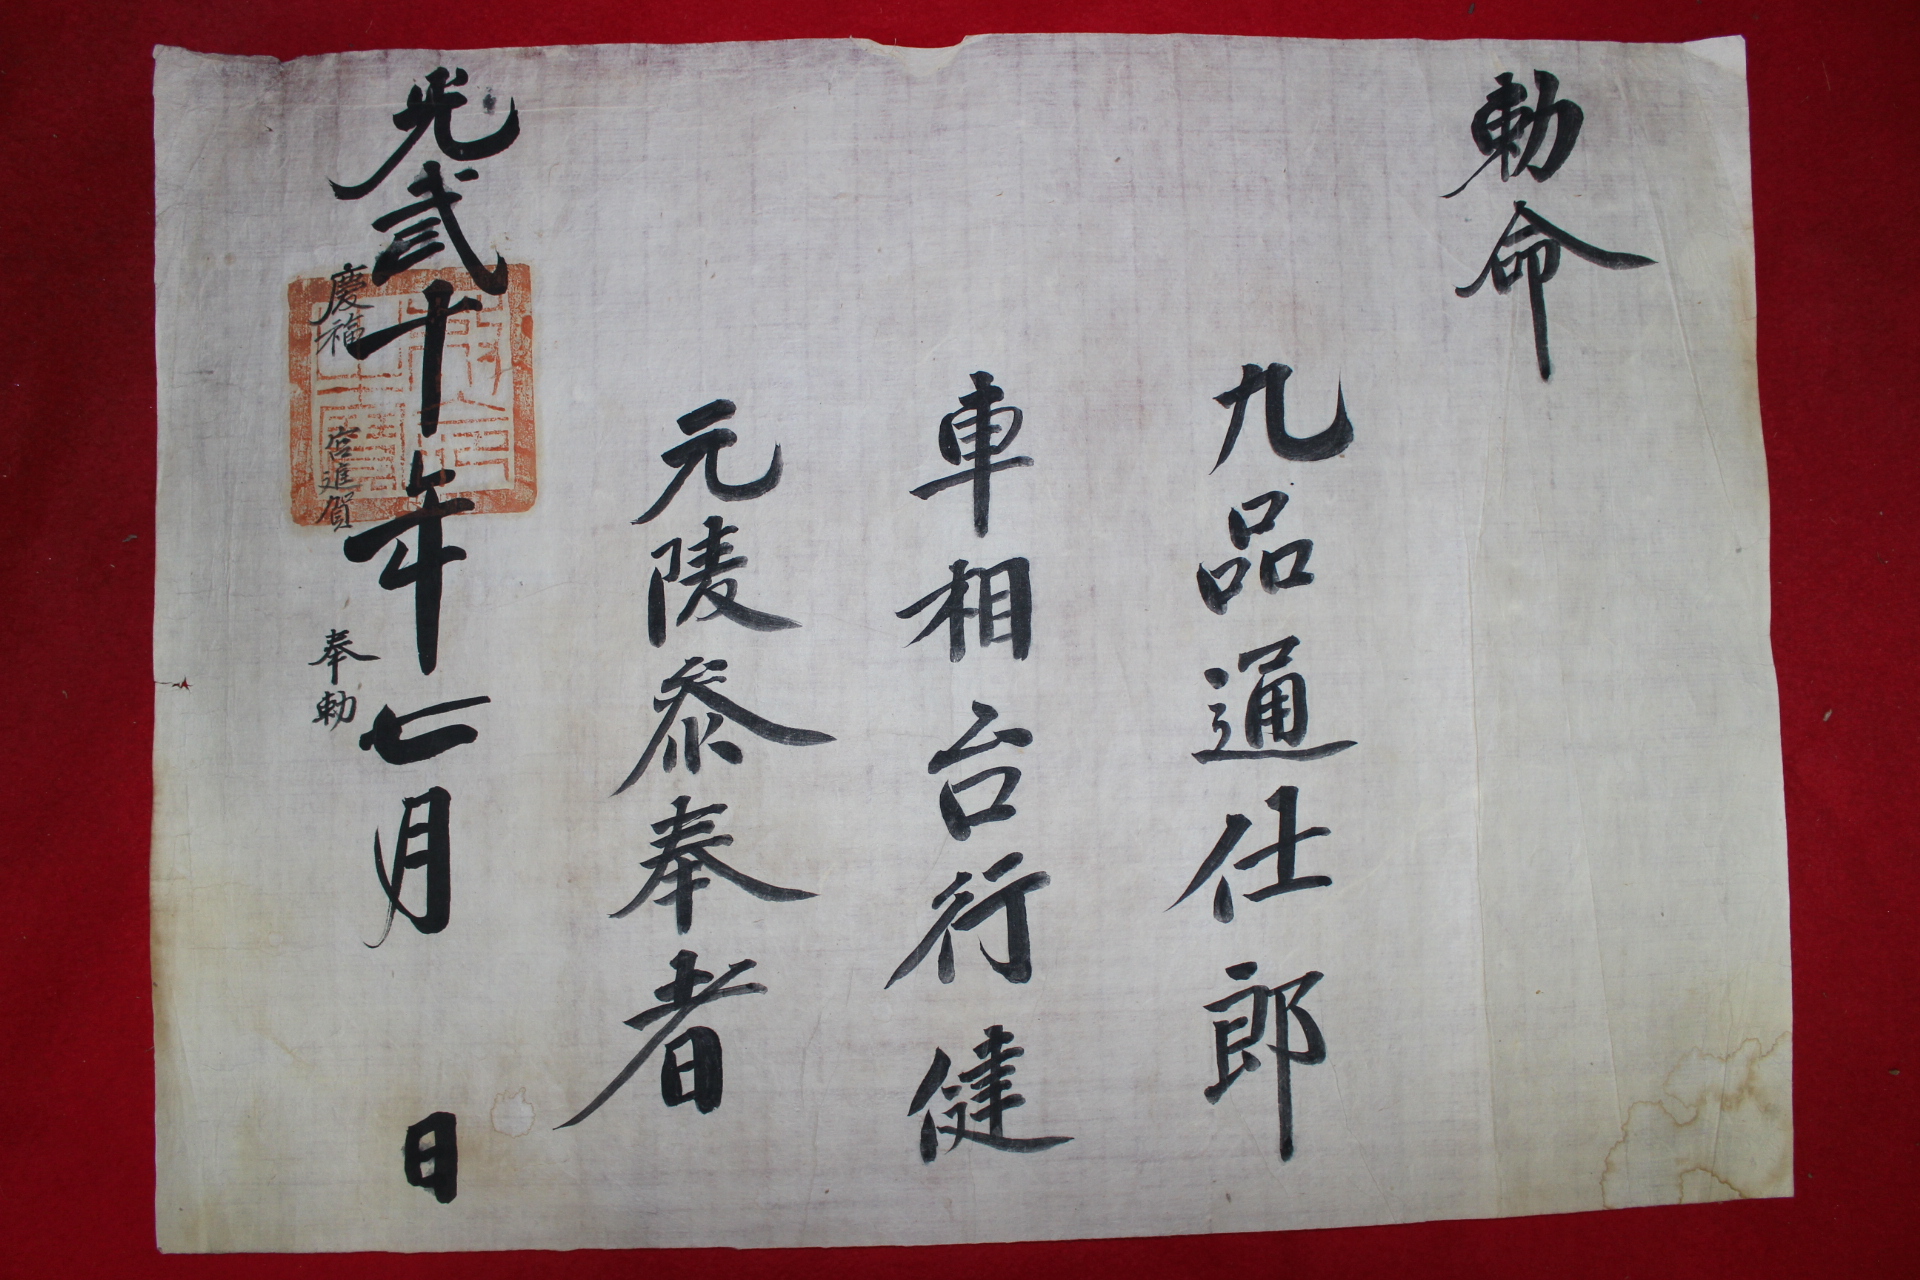 勅命
九品通仕郎
車相台行健
元陵叅奉者
光貳十年七月 日
慶福宮進賀
奉勅